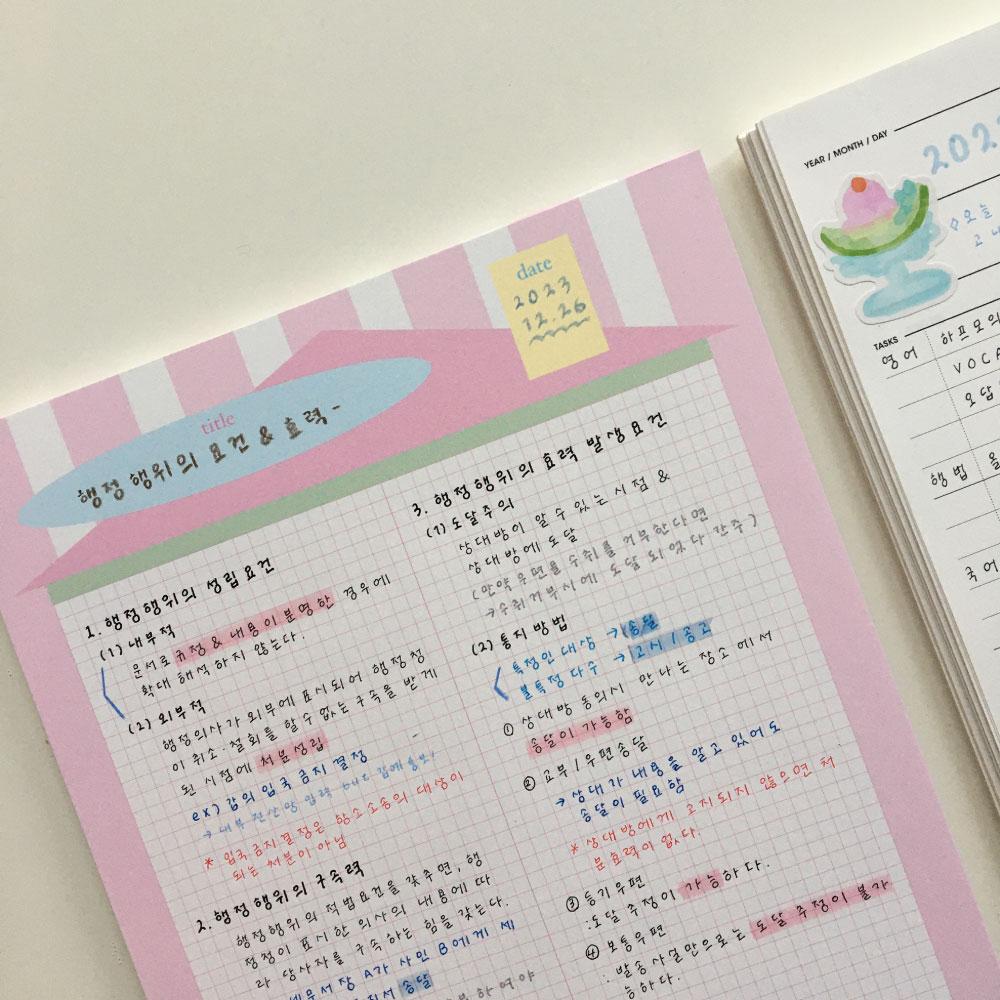 title
행정행위의 요건 & 효력 -
date
2023
12.26
1. 행정행위의 성립요건
(1) 내부적
문서로 규정 & 내용이 분명한 경우에
확대 해석하지 않는다.
(2) 외부적
행정의사가 외부에 표시되어 행정청
이 취소·철회를 할 수 없는 구속을 받게
된 시점에 처분성립
ex) 갑의 입국 금지 결정
→ 내부 전산망 입력
* 입국금지결정은 항소소송의 대상이
되는 처분이 아님
2. 행정행위의 구속력
행정행위의 적법요건을 갖추면, 행
정청이 표시한 의사의 내용에 따
라 당사자를 구속하는 힘을 갖는다.
세무서장 A가 사인 B에게 세
송달
하여야
3. 행정행위의 효력 발생요건
(1) 도달주의
상대방이 알 수 있는 시점 &
상대방에 도달
(만약 우편물 수취를 거부한다면
→ 수취거부시에 도달 되었다 간주)
(2) 통지 방법
특정인 대상 → 송달
불특정 다수 → 고시 / 공고
① 상대방 동의시 만나는 장소에서
송달이 가능함
② 교부 / 우편송달
→ 상대가 내용을 알고 있어도
송달이 필요함
* 상대방에게 고지되지 않으면 처
분효력이 없다.
③ 등기우편
: 도달 추정이 가능하다.
④ 보통우편
: 발송 사실만으로는 도달 추정이 불가
능하다.
YEAR / MONTH / DAY
202
◇ 오늘
TASKS
영어 하프모의
VOCA
오답
행법
국어